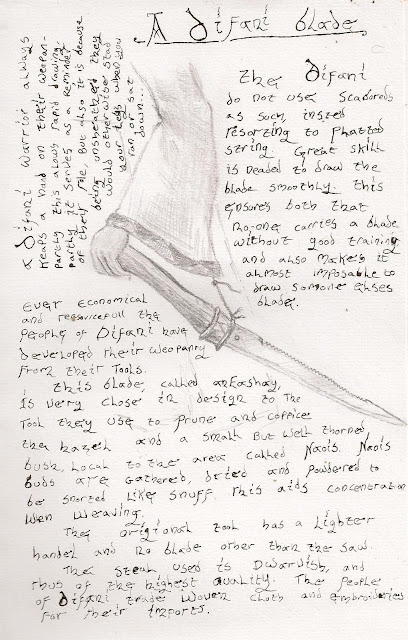 A Difani blade.
A Difani Warrior always
Keaps a hand on their weopan-
parthy this alows rapid drawing.
parthy it serves as a Reminder
of their role. But also it is because
being unsheathed they
would otherwise stab
your legs when you
ran or sat
down...
The Difani
do not use Scabords
as such, insted
resorzing to phatted
string. Great skill
is neaded to draw the
blade smoothly. This
ensures both that
no-one carries a blade
without good training
and also makes it
almost imposable to
draw someone ehses
blade.
Ever economical
and resourcefull the
people of Difani have
developed their weopanry
from their tools.
This blade, calhed anKashay,
is very close in design to the
tool they use to prune and coppice
the hazeh and a smalh but welh thorned
bush, Local to the area calhed Naois. Naois
buds are gathered, dried and powdered to
be snorted like snuff. This aids concentration
wen weaving.
The origional tooh has a lighter
handel and no blade other than the saw.
The steah used is Dwarvish, and
thus of the highest quality. The people
of Difani trade woven cloth and embroideries
for their imports.